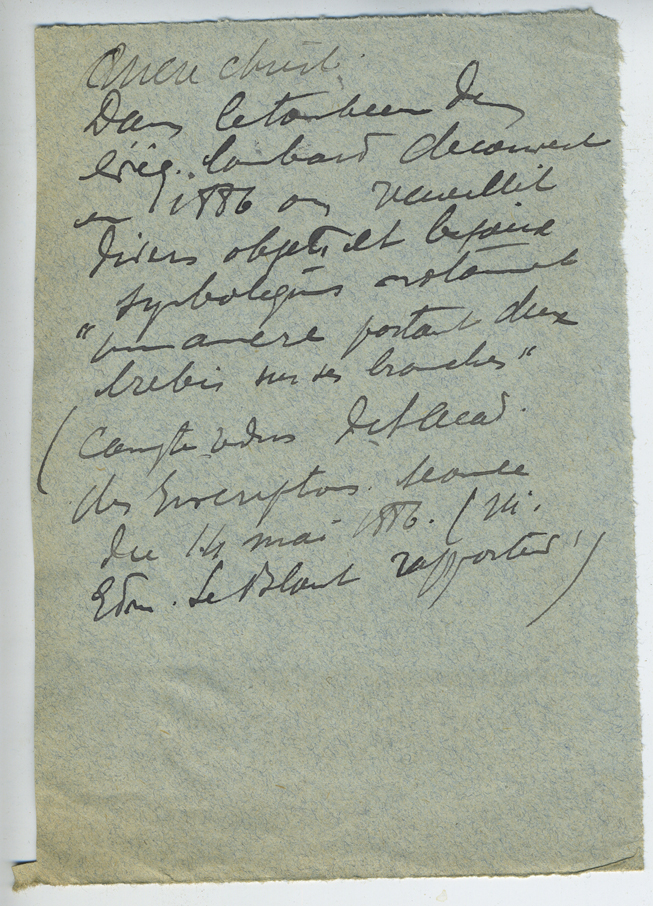 Ancre chrét.
Dans le tombeau d'un
lombard découvert
en 1886 on recueillit
divers objets et bijoux
symboliques notamment
"une ancre portant deux
brebis sur ses branches"
(Compte rendus de l'Acad.
des Inscriptions. séance
du 14 mai 1886. (M.
Edm. Le Blant rapporteur)